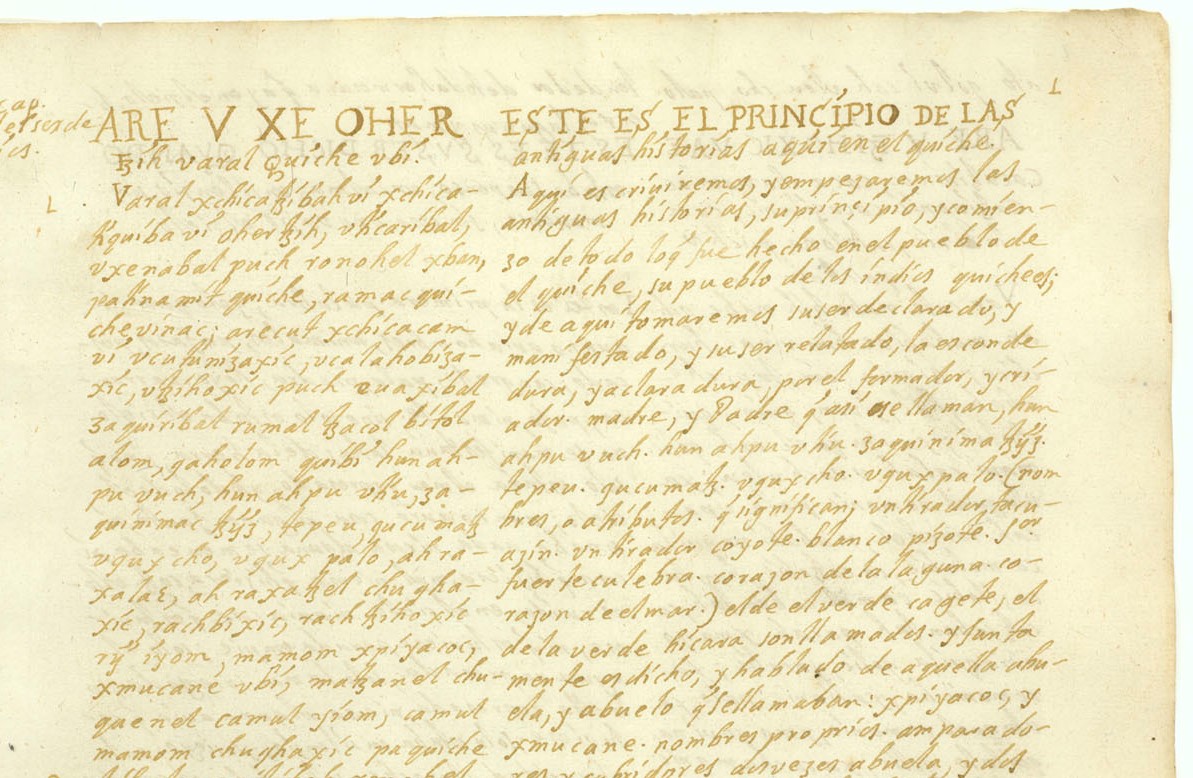 ARE V XE OHER
ꜩih varal Quiche vbi.
Varal xchicaꜩibah vi xchica-
tiquiba vi oher ꜩih, vticaribal,
vxenabal puch ronohel xban,
pa tinamit quiche, ramac qui-
che vinac; arecut xchicacam
vi vcutunizaxic, vcalahobiza-
xic, vꜩihoxic puch euaxibal
zaquiribal rumal ꜩacol bitol
alom, qaholom quibi hun ah-
pu vuch, hun ahpu vtiu, za-
quinimac ꜩÿz, tepeu, qucumaꜩ
vqux cho, vqux palo, ah ra-
xa la, ah raxa ꜩel chugha-
xic, rachbixic, rach ꜩihoxic
rÿ iyom, mamom xpiyacoc,
xmucane vbi, maꜩanel chu-
quenel camul yiom, camul
mamom chughaxic pa quiche
ESTE ES EL PRINCIPIO DE LAS
antiguas historias aqui en el quiché.
Aqui escriviremos, y empezaremos las
antiguas historias, su prinçipio, y comien-
zo de todo lo q̃ fue hecho en el pueblo de
el quiche, su pueblo de los indios quichees;
y de aqui tomaremos su ser declarado, y
manifestado, y su ser relatado, la esconde
dura, y aclaradura, por el formador, y cri-
ador. madre, y Padre q̃ asi se llaman, hun
ahpu vuch. hun ahpu vtiu. zaquinima ꜩÿz.
tepeu. qucumaꜩ. vqux cho. vqux palo. (nom
bres, o atributos. q̃ significan; vn tirador, tacu-
azin. vn tirador coyote. blanco pizote. sor
fuerte culebra. corazon de la laguna. co-
razon de el mar.) el de el verde caxete, el
de la verde hicara son llamados. y junta
mente es dicho, y hablado de aquella abu-
ela, y abuelo q̃ se llamaban: xpiyacoc, y
xmucane. nombres proprios. amparado-
res y cubridores dos vezes abuela, y dos